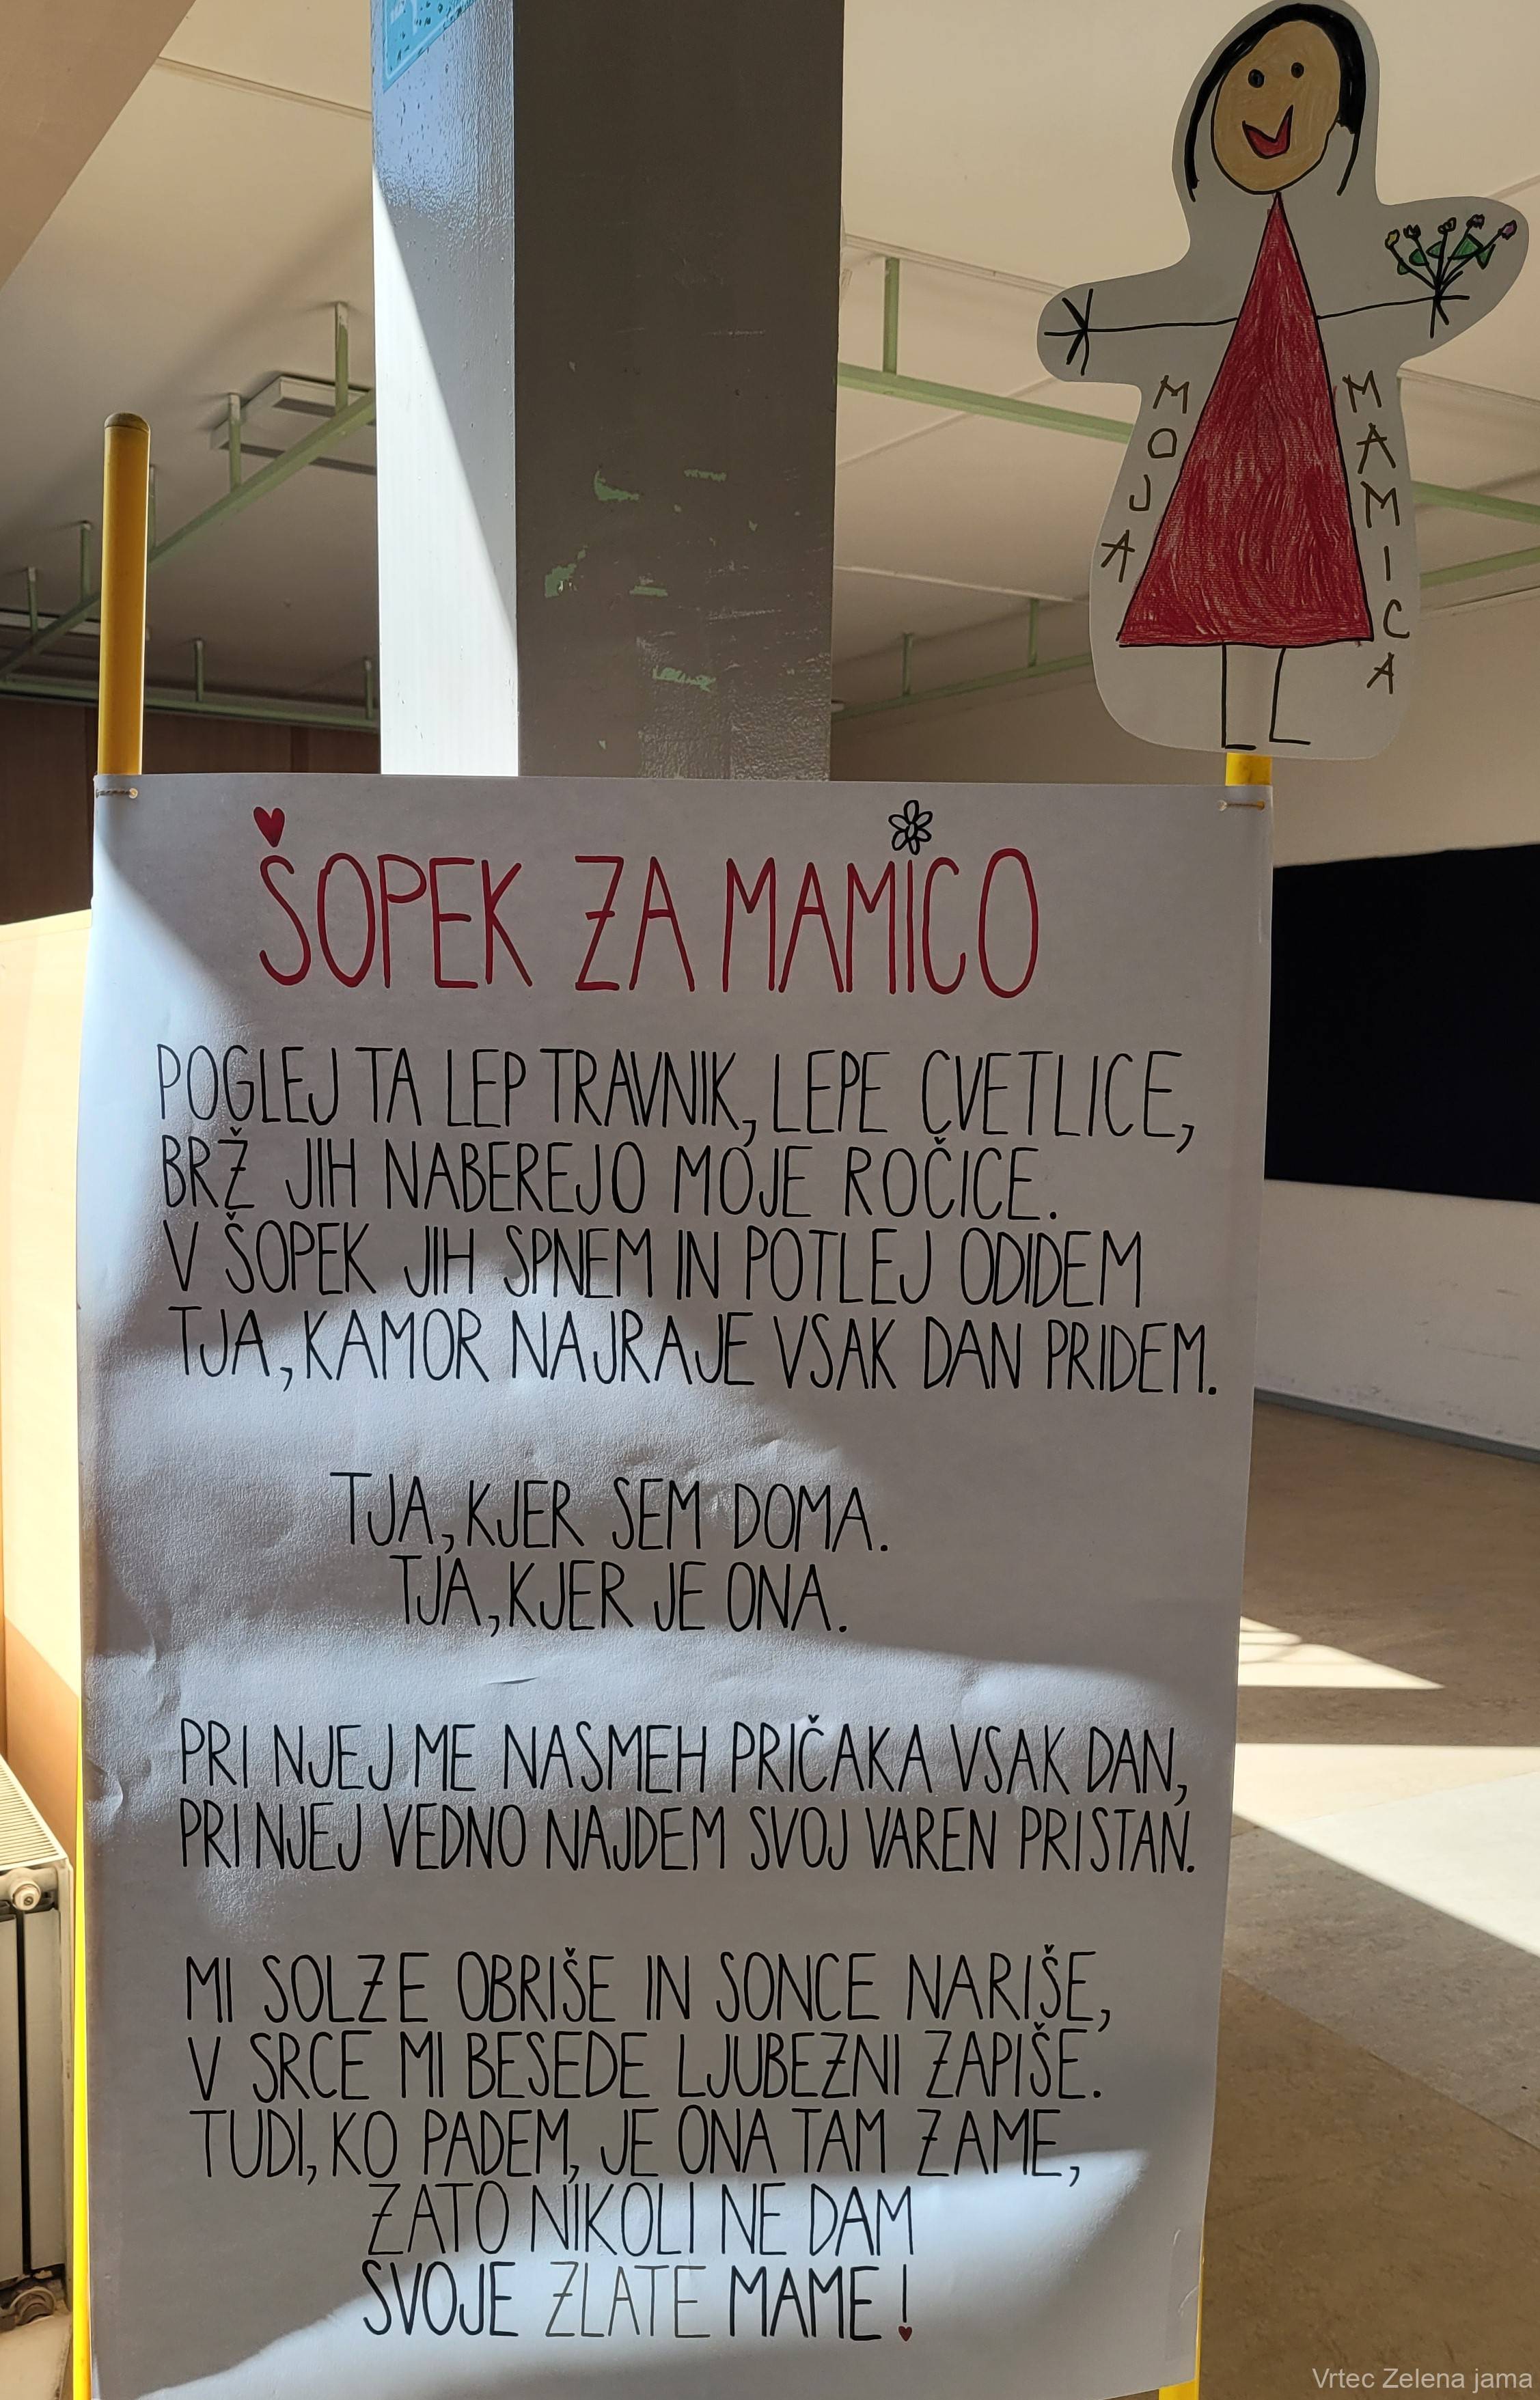 MOJA
MAMICA
ŠOPEK ZA MAMICO
POGLEJ TA LEP TRAVNIK, LEPE CVETLICE,
BRŽ JIH NABEREJO MOJE ROČICE.
V ŠOPEK JIH SPNEM IN POTLEJ ODIDEM
TJA, KAMOR NAJRAJE VSAK DAN PRIDEM.
TJA, KJER SEM DOMA.
TJA, KJER JE ONA.
PRI NJEJ ME NASMEH PRIČAKA VSAK DAN,
PRI NJEJ VEDNO NAJDEM SVOJ VAREN PRISTAN.
MI SOLZE OBRIŠE IN SONCE NARIŠE,
V SRCE MI BESEDE LJUBEZNI ZAPIŠE.
TUDI, KO PADEM, JE ONA TAM ZAME,
ZATO NIKOLI NE DAM
SVOJE ZLATE MAME!
Vrtec Zelena jama